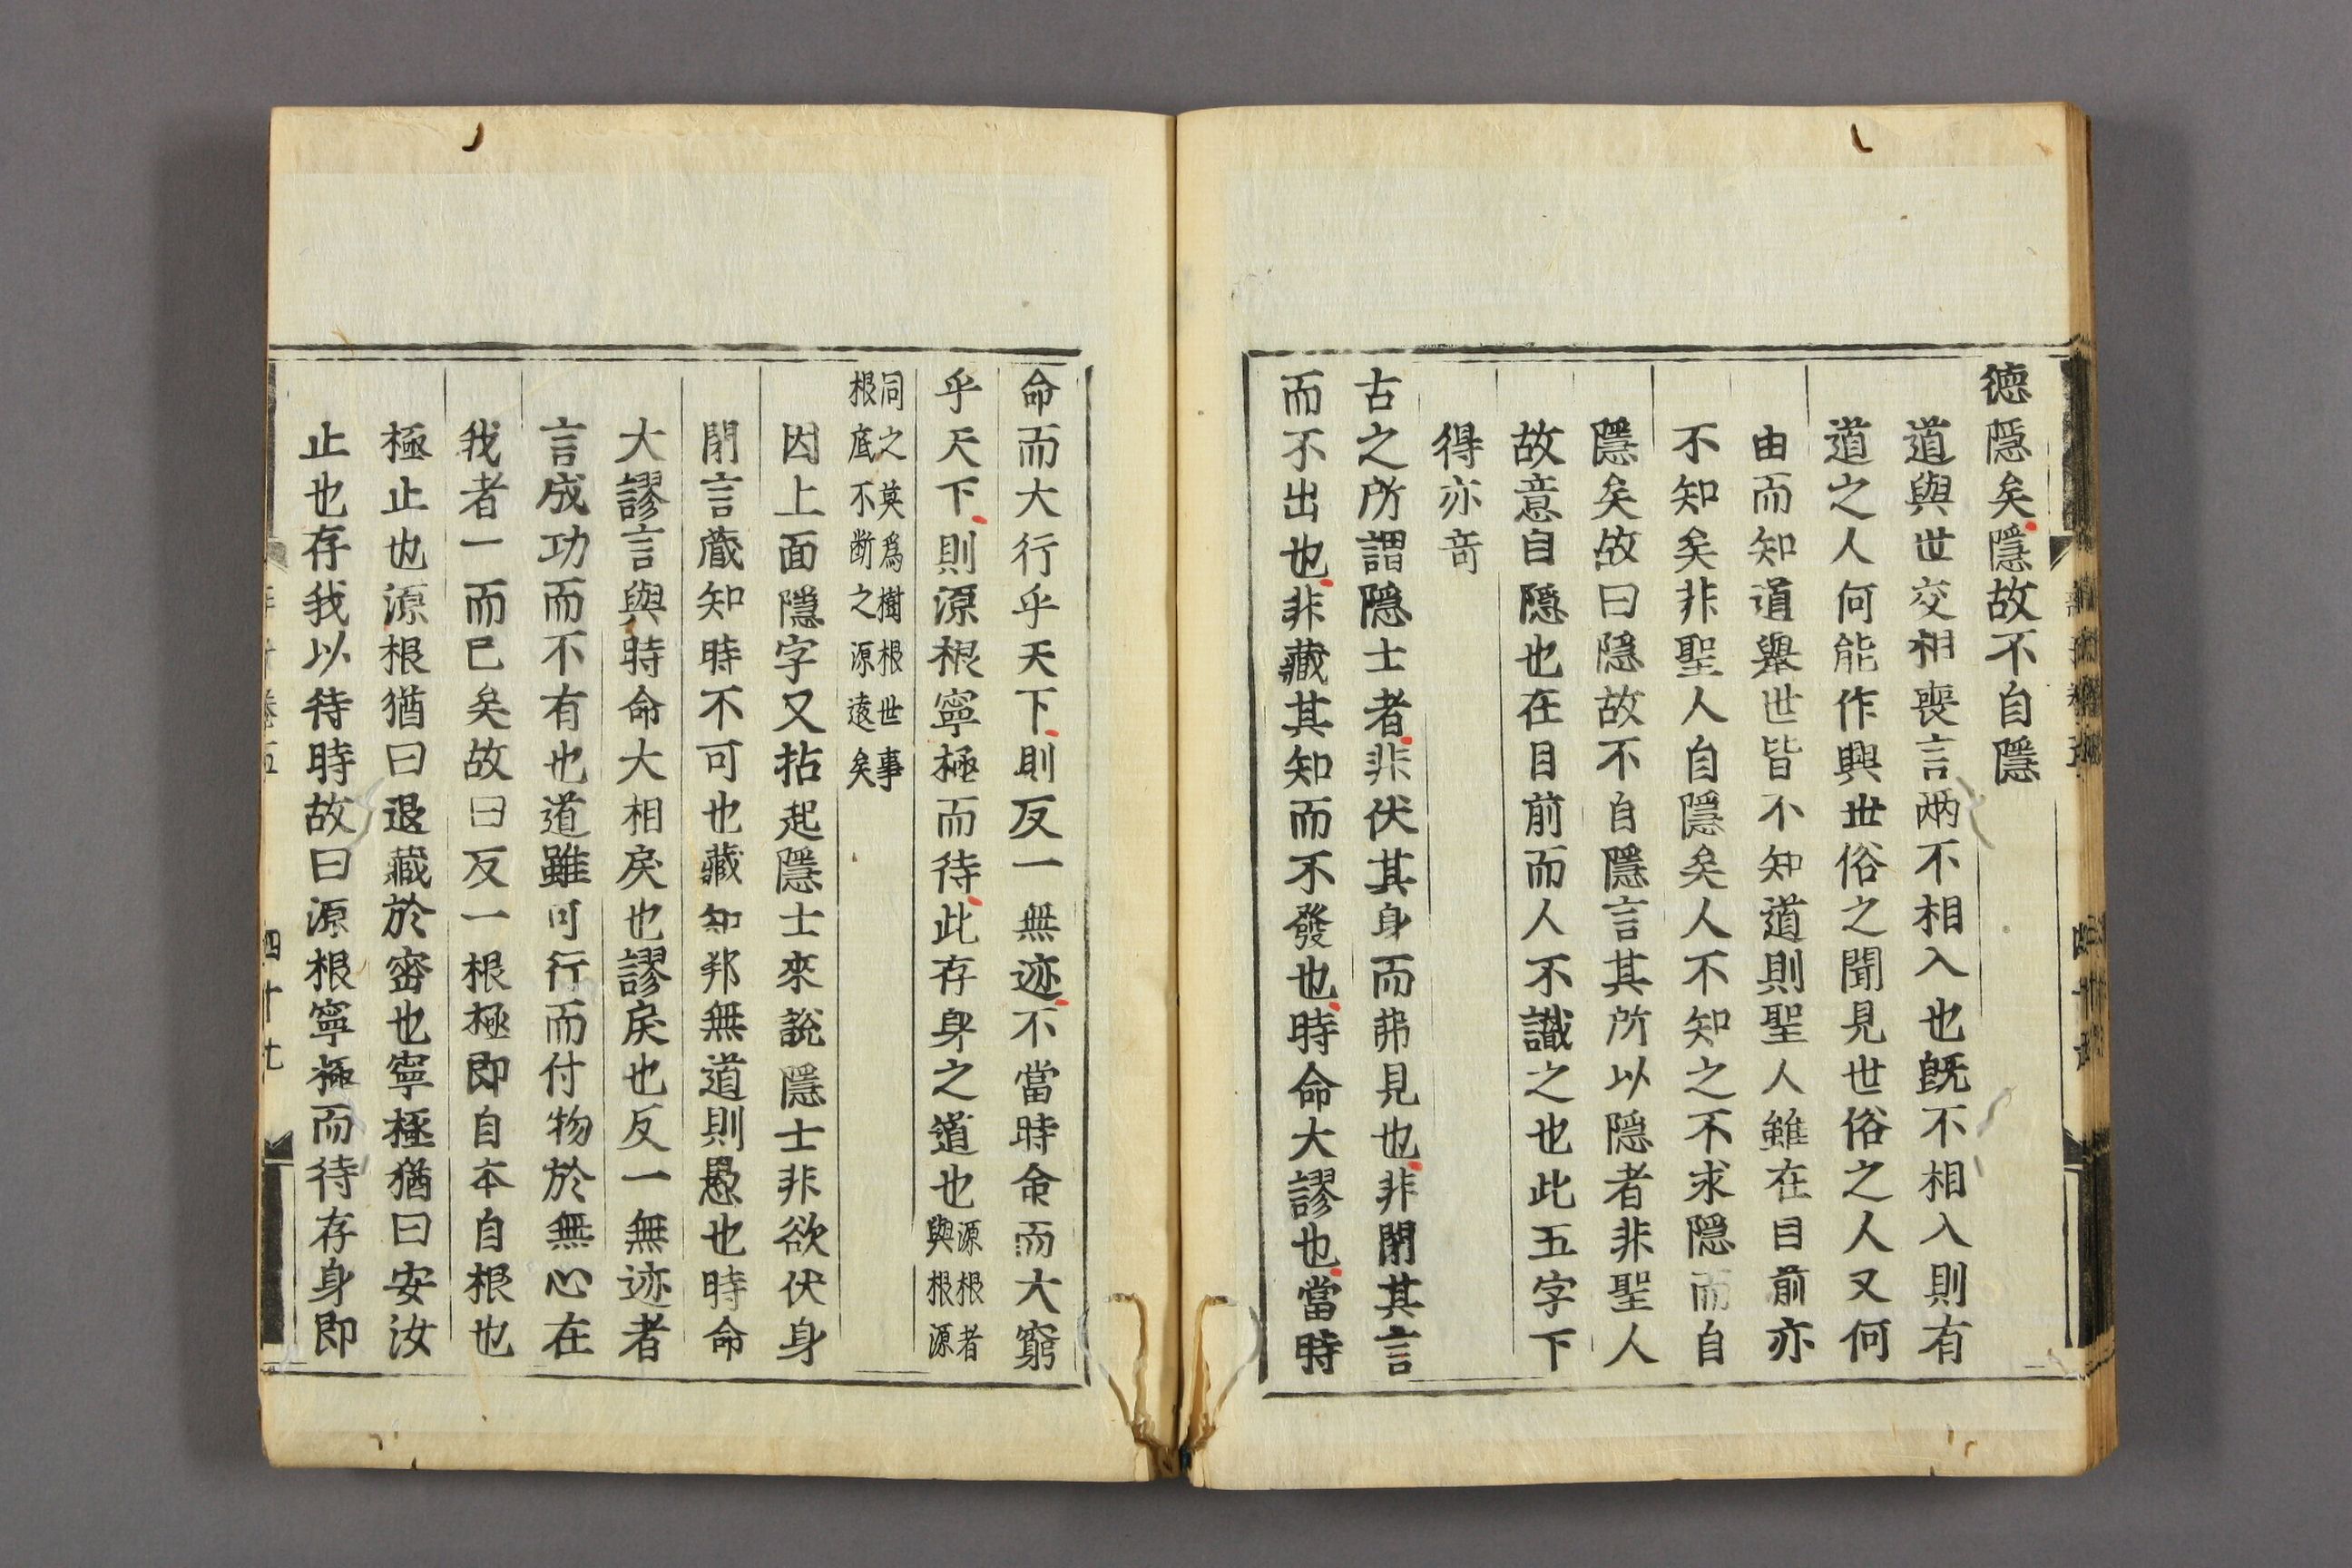 德隱矣隱故不自隱
道與世交相喪言兩不相入也旣不相入則有
道之人何能作興世俗之聞見世俗之人又何
由而知道舉世皆不知道則聖人雖在目前亦
不知矣非聖人自隱矣人不知之不求隱而自
隱矣故曰隱故不自隱言其所以隱者非聖人
故意自隱也在目前而人不識之也此五字下
得亦奇
古之所謂隱士者非伏其身而弗見也非閉其言
而不出也非藏其知而不發也時命大謬也當時
命而大行乎天下則反一無迹不當時命而大窮
乎天下則源根寧極而待此存身之道也源根者與根源
同之莫爲樹根世事根底不斷之源遠矣
因上面隱字又拈起隱士來說隱士非欲伏身
閉言藏知時不可也藏知邦無道則愚也時命
大謬言與時命大相戾也謬戾也反一無迹者
言成功而不有也道雖可行而付物於無心在
我者一而已矣故曰反一根極即自本自根也
極止也源根猶曰退藏於密也寧極猶曰安汝
止也存我以待時故曰源根寧極而待存身即
卷五
四十七